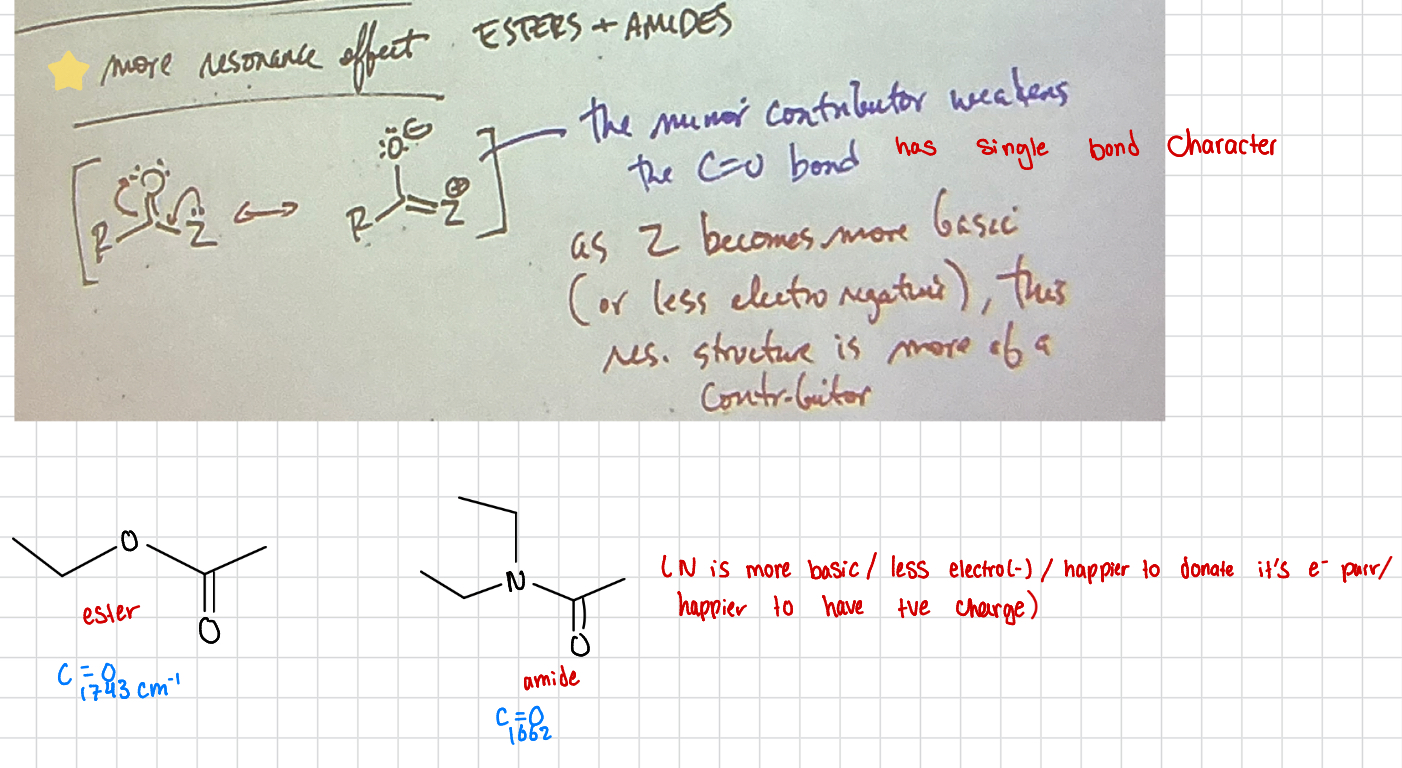 more resonance effect ESTERS + AMIDES
the minor contributor weakens
the C=O bond has single bond character
:Ö:⊖
:Ö:
R Z̈ ↔ R Z⊕
as Z becomes more basic
(or less electronegative), this
res. structure is more of a
contributor
O
N
(N is more basic/ less electro(-) / happier to donate it's e⁻ pair/
happier to have +ve charge)
ester
O
O
C=O
1743 cm⁻¹
amide
C=O
1662